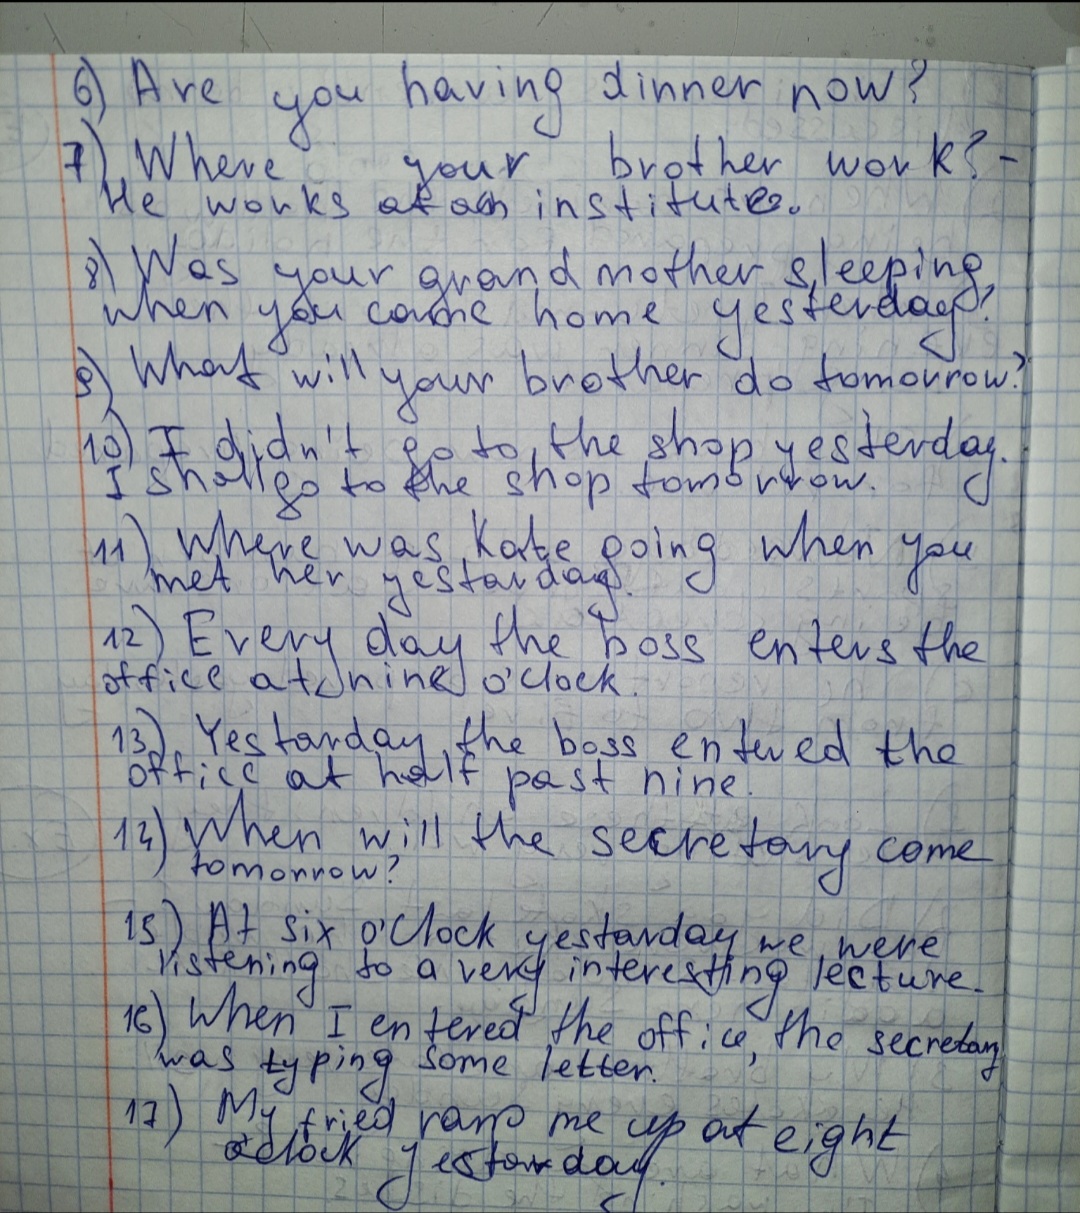 6) Are you having dinner now?
7) Where your brother work? -
He works at an institute.
8) Was your grandmother sleeping
when you came home yesterday?
9) What will your brother do tomorrow?
10) I didn't go to the shop yesterday.
I shall go to the shop tomorrow.
11) Where was Kate going when you
met her yestarday.
12) Every day the boss enters the
office at nine o'clock.
13) Yestarday the boss entered the
office at half past nine.
14) When will the secretary come
tomorrow?
15) At six o'clock yestarday we were
listening to a very interesting lecture.
16) When I entered the office, the secretary
was typing some letter.
17) My fried rang me up at eight
o'clock yestarday.